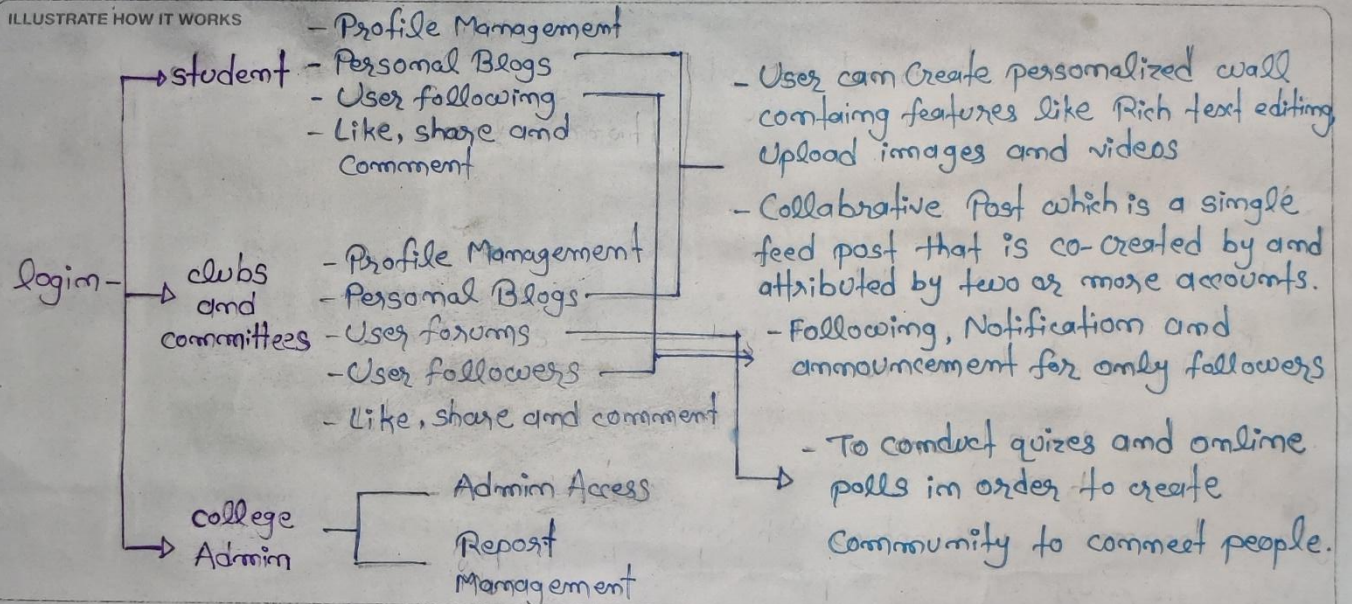 ILLUSTRATE HOW IT WORKS
student
- Profile Management
- Personal Blogs
- User following
- Like, share and
Comment
login
clubs
and
committees
- Profile Management
- Personal Blogs
- User forums
- User followers
- Like, share and comment
college
Admin
Admin Access
Report
Management
- User can Create personalized wall
containg features like Rich text editing
Upload images and videos
- Collabrative Post which is a single
feed post that is co-created by and
attributed by two or more accounts.
- Following, Notification and
announcement for only followers
- To conduct quizes and online
polls in order to create
Community to connect people.